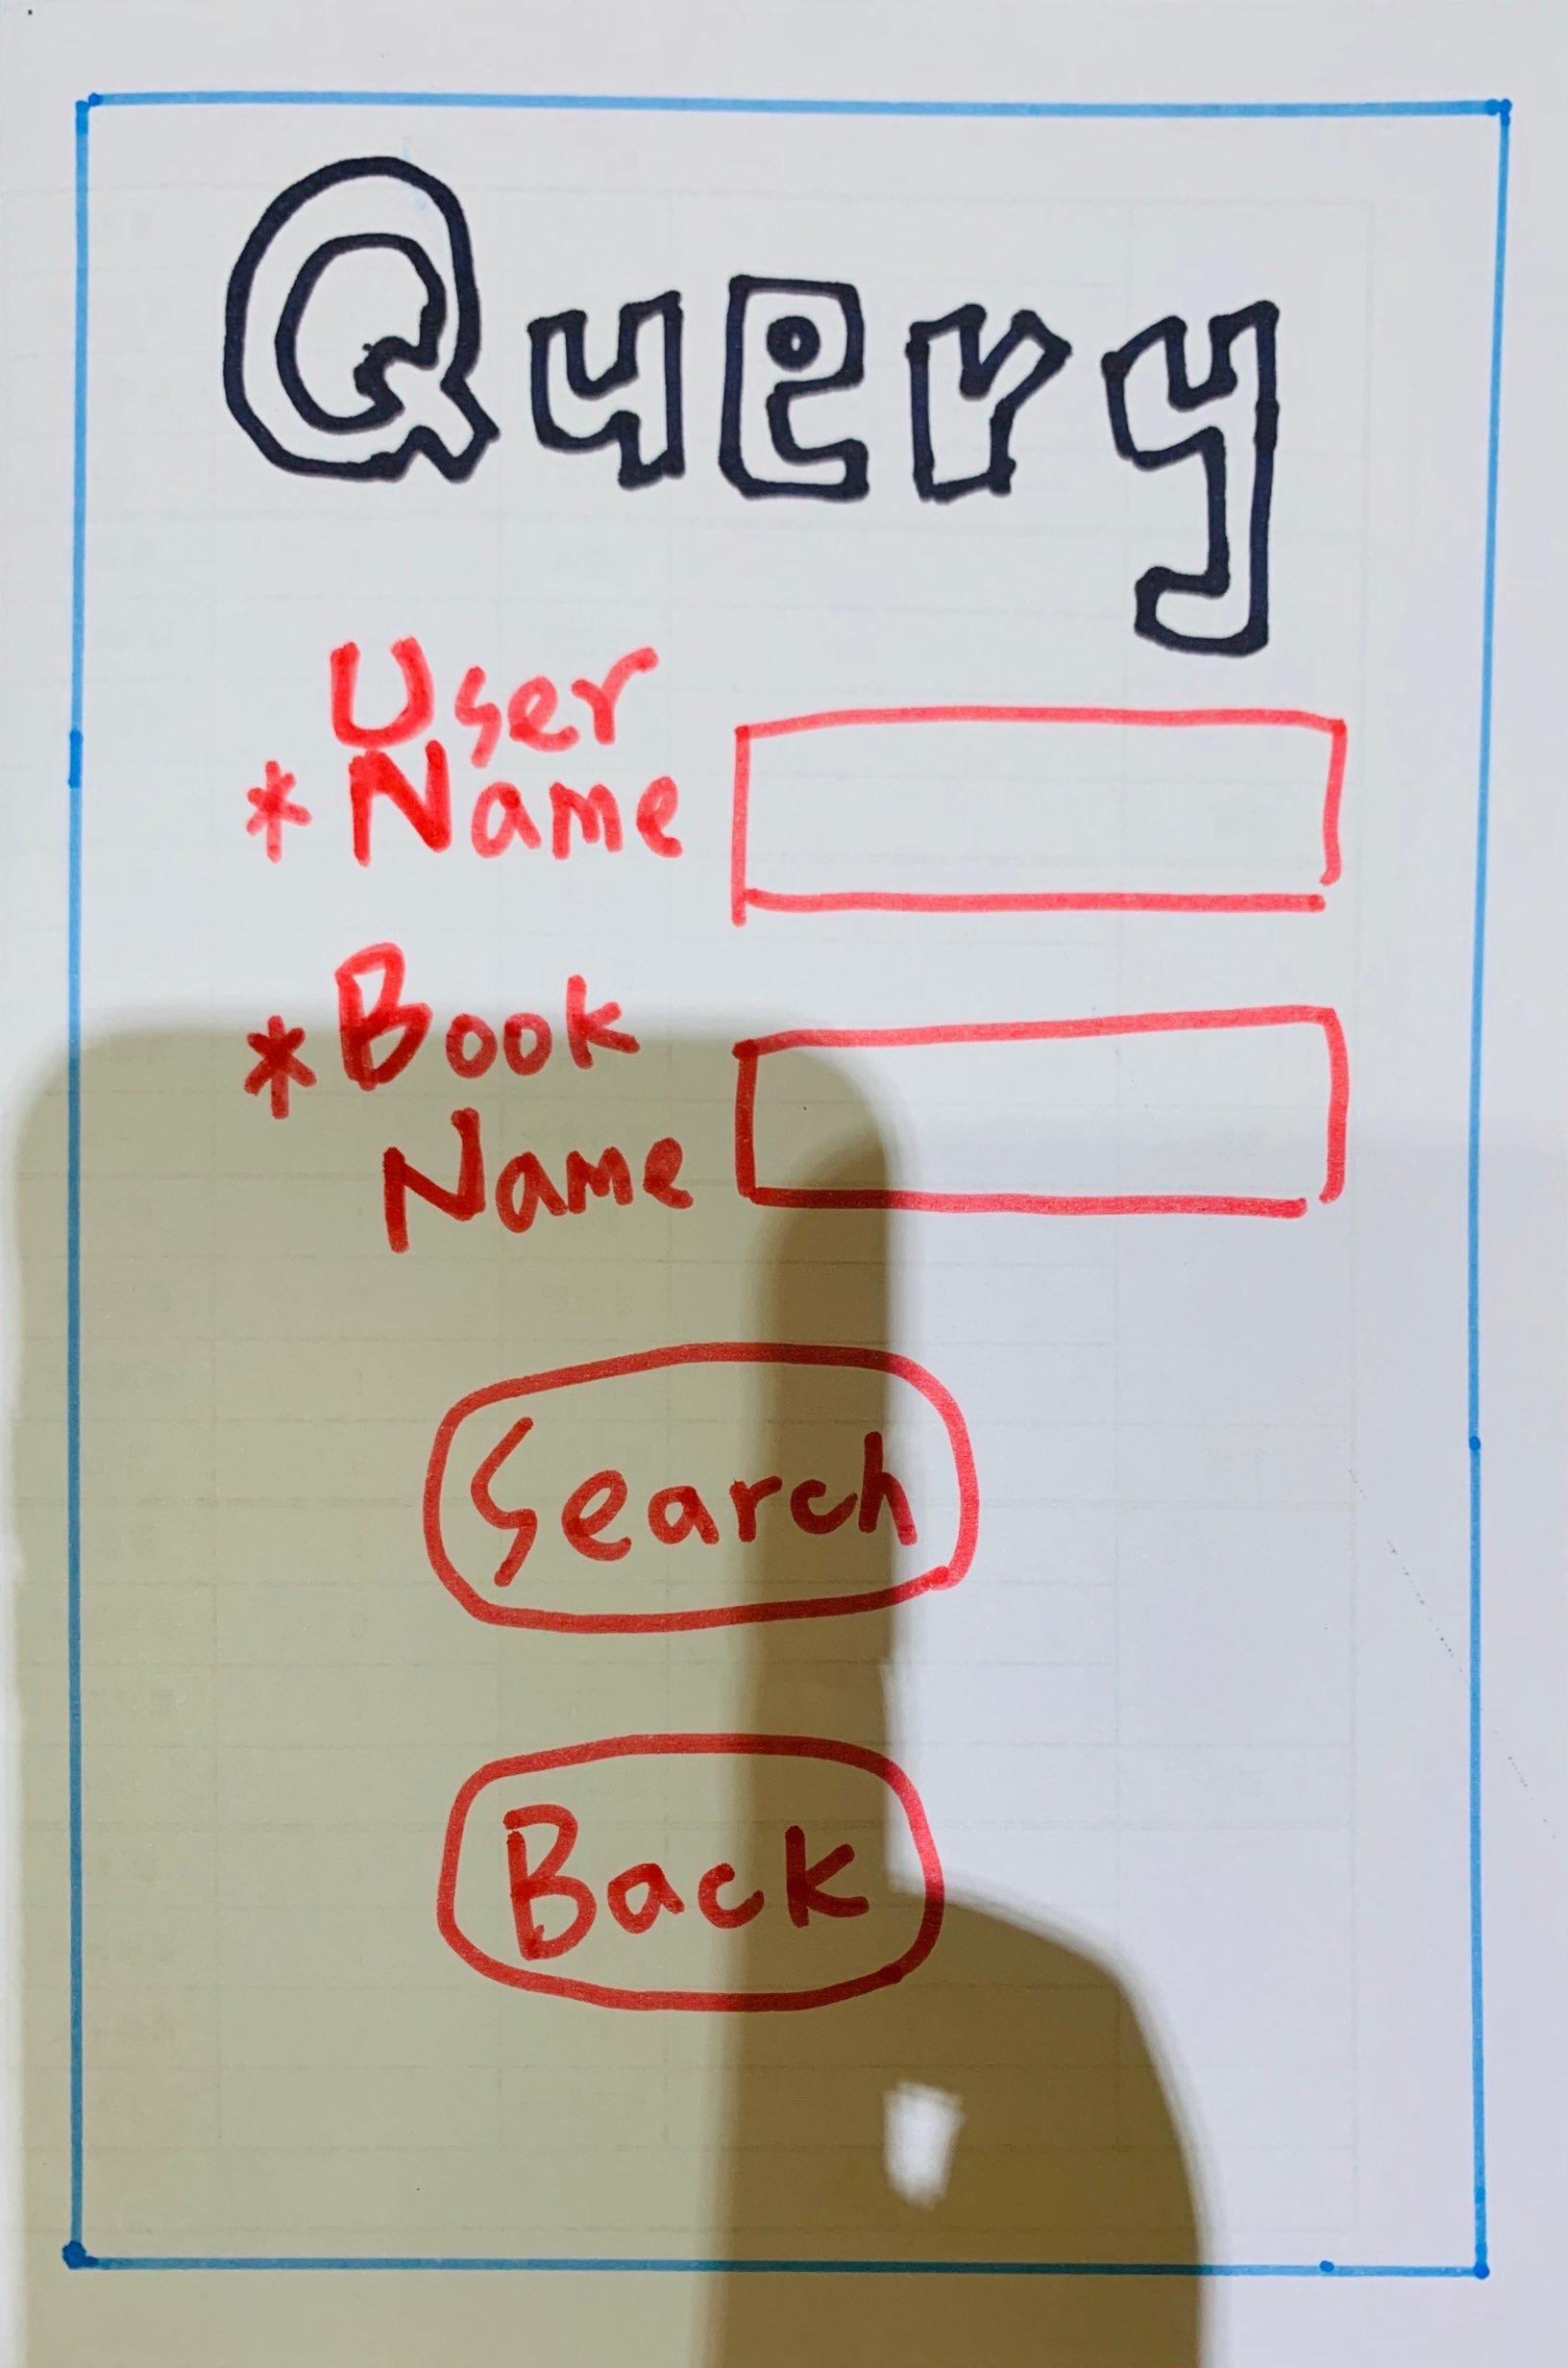 Query
User
* Name
* Book
Name
Search
Back